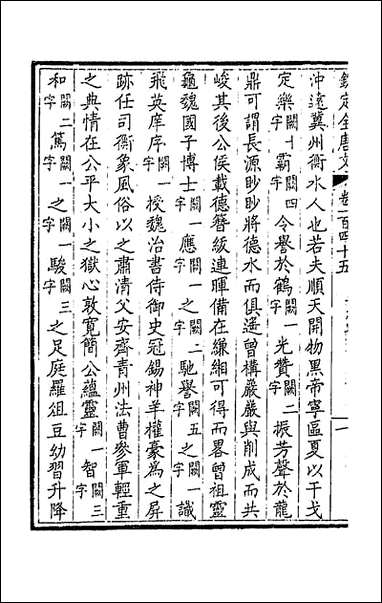 欽定全唐文 卷一百四十五 一
沖遠冀州衡水人也若夫順天開物黑帝寧區夏以干戈
定樂闕十字霸闕四字令譽於鶴闕一字光贊闕二字振芳聲於龍
鼎可謂長源眇眇將德水而俱遙曾構巖巖與削成而共
峻其後公侯載德簪紱連暉備在縑緗可得而畧曾祖靈
龜魏國子博士闕一字應闕一字之闕二字馳譽闕五字之闕一字識
飛英庠序闕一字授魏治書侍御史冠錫神羊權豪為之屏
跡任司衡象風俗以之肅清父安齊青州法曹參軍輕重
之典情在公平大小之獄心敦寬簡公蘊靈闕一字智闕三字
和闕二字篤闕一字之闕一字駿闕三字之足庭羅俎豆幼習升降